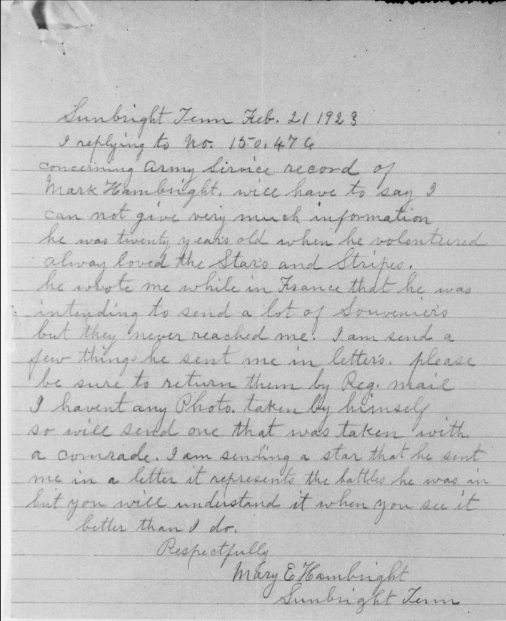 Sunbright Tenn Feb. 21 1923
I replying to No. 150,476
concerning Army Sirvice record of
Mark Hambright. will have to say I
can not give very much information
he was twenty years old when he volontured
alway loved the Stars and Stripes.
he wrote me while in France that he was
intending to send a lot of Souveniers
but they never reached me. I am send a
few things he sent me in letters. please
be sure to return them by Reg. mail
I havent any Photo. taken by himself
so will send one that was taken with
a comrade. I am sending a star that he sent
me in a letter it represents the battles he was in
but you will understand it when you see it
better than I do.
Respectfully
Mary E Hambright
Sunbright Tenn